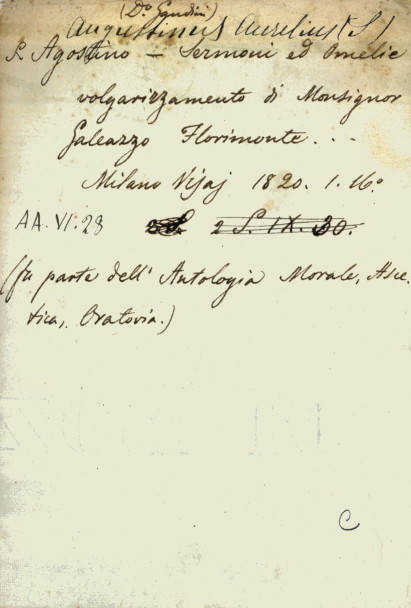 (Do. Gandini)
Augustinus Aurelius (S.)
S. Agostino — Sermoni ed Omelie
volgarizzamento di Monsignor
Galeazzo Florimonte . . .
Milano Visaj 1820. 1. 16o
AA. VI. 28 2 S. IX. 30.
(fa parte dell' Antologia Morale, Asce-
tica, Oratoria.)
C